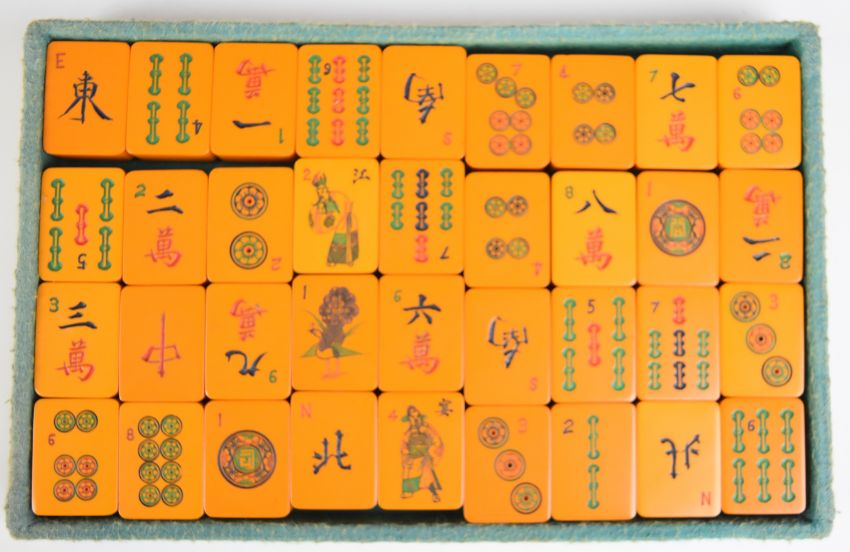 E
東
4
一
萬
1
9
南
S
7
4
7
七
萬
6
5
2
二
萬
2
2
7
4
8
八
萬
1
二
萬
2
3
三
萬
中
九
萬
9
1
6
六
萬
南
S
5
7
3
6
8
1
N
北
4
宴
3
2
北
N
6